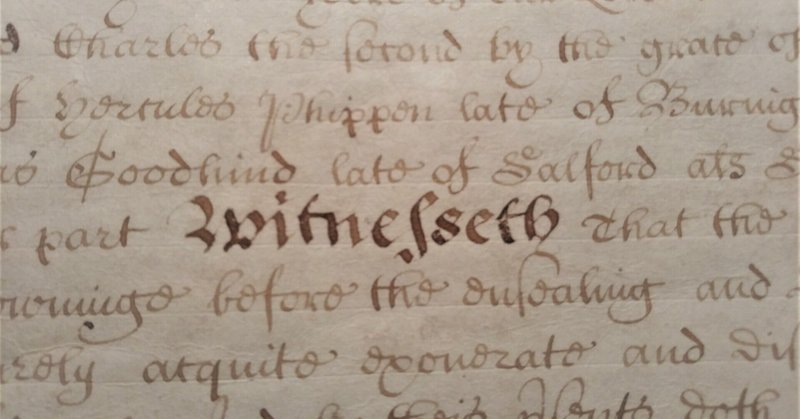 Charles the second by the grace of
Hercules Phippen late of Burnig
Goodhind late of Salford als S
part Witnesseth That the
owninge before the ensealing and
rely acquite exonerate and dis
by theis psents doth